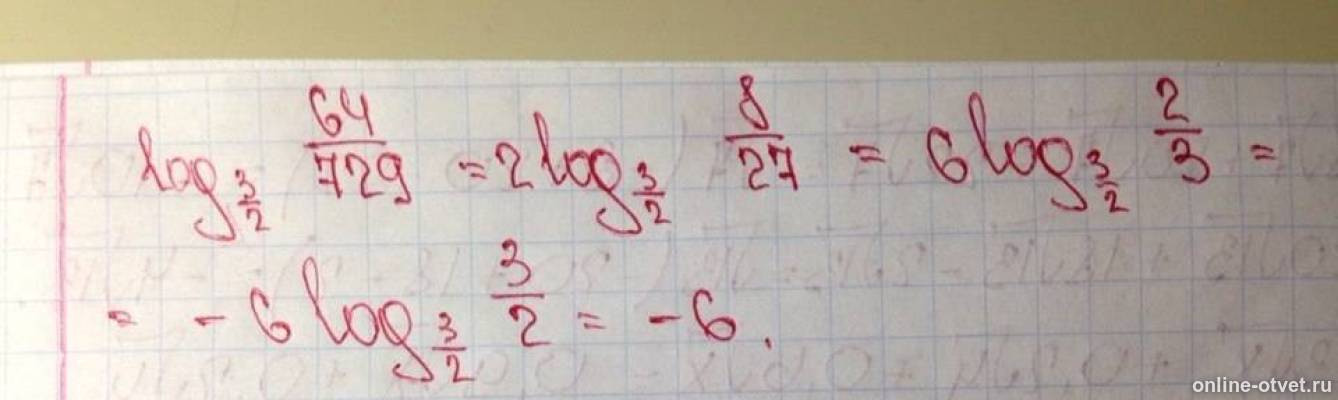 log_{3/2} 64/729 = 2 log_{3/2} 8/27 = 6 log_{3/2} 2/3 =
= - 6 log_{3/2} 3/2 = - 6.
online-otvet.ru